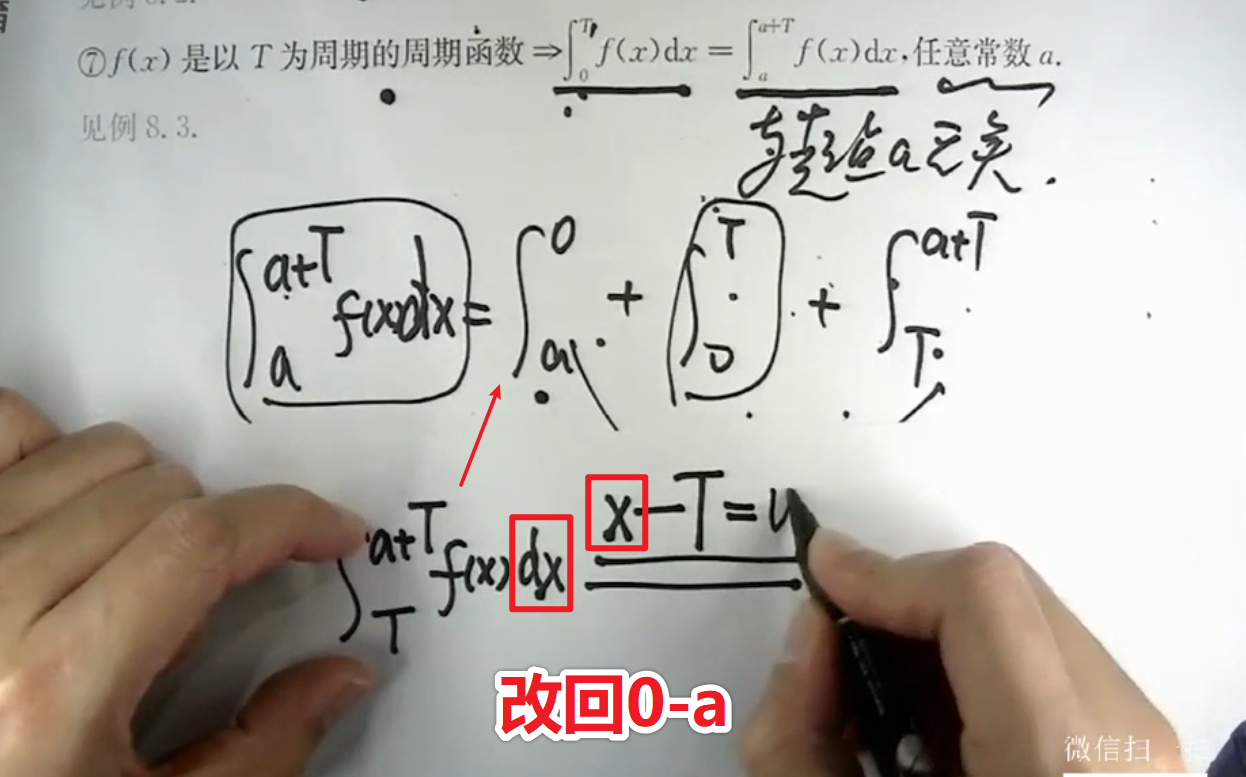 ⑦f(x) 是以 T 为周期的周期函数⇒∫₀ᵀ f(x)dx = ∫ₐᵃ⁺ᵀ f(x)dx,任意常数 a.
见例 8.3.
与起点a无关.
∫ₐᵃ⁺ᵀ f(x)dx = ∫ₐ⁰ + ∫₀ᵀ + ∫_T^{a+T}
∫_T^{a+T} f(x)dx x-T=u
改回0-a
微信扫一扫